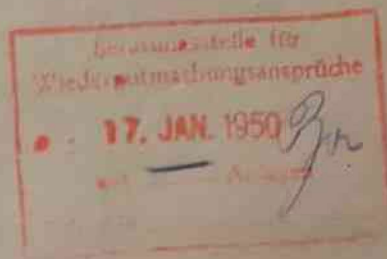 Beratungsstelle für
Wiedergutmachungsansprüche
17. JAN. 1950